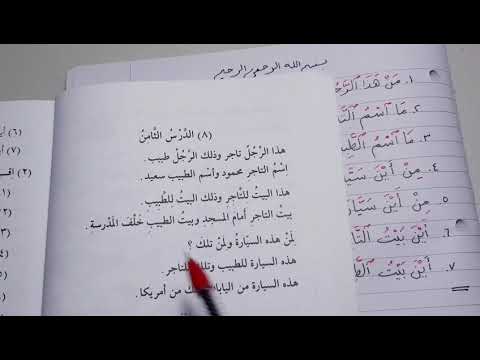 بسم الله الرحمن الرحيم
(٨) الدَّرْسُ الثَّامنُ
هذا الرَّجُلُ تاجر وذلك الرَّجُلُ طبيب.
اسْمُ التاجر محمود واسْم الطبيب سعيد.
هذا البيتُ للتَّاجر وذلك البيتُ للطَّبيب.
بيتُ التاجرِ أمامَ المسجدِ وبيتُ الطبيبِ خَلْفَ المَدْرسة.
لِمَنْ هذه السيَّارةُ ولِمَنْ تلك ؟
هذه السيارة للطبيب وتلك للتاجر.
هذه السيارة من اليابان من أمريكا.
١. مَنْ هَذَا
٢. مَا ٱسْمُ
٣. مَا ٱسْمُ
٤. مِنْ أَيْنَ
٥. مِنْ أَيْنَ
٦. أَيْنَ بَيْتُ
٧. أَيْنَ بَيْتُ
(٦)
(٧)
(٢)
(١)
(٢)
(٣)
(٤)
(٥)